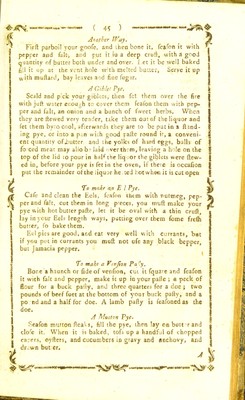 ( 45 )
Another Way.
Firſt parboil your gooſe, and then bone it, ſeaſon it with
pepper and ſalt, and put it in a deep cruſt, with a good
quantity of butter both under and over. Let it be well baked
fill it up at the vent hole with melted butter, Serve it up
with muſtard, bay leaves and fine ſugar.
A Giblet Pye.
Scald and pick your giblets, then ſet them over the fire
with juſt water enough to cover them ſeaſon them with pep-
per and ſalt, an onion and a bunch of ſweet herbs. When
they are ſtewed very tender, take them out of the liquor and
let them by to cool, afterwards they are to be put in a ſtand-
ing pye, or into a pan with good paſte round it, a conveni-
ent quantity of butter and the yolks of hard eggs, balls of
forced meat may alſo be laid over them, leaving a hole on the
top of the lid to pour in half the liquor the giblets were ſtew-
ed in, before your pye is ſet in the oven, if there is occaſion
put the remainder of the liquor he hot when it is cut open
To make an Eel Pye.
Caſe and clean the Eels, ſeaſon them with nutmeg, pep-
per and ſalt, cut them in long pieces, you muſt make your
pye with hot butter paſte, let it be oval with a thin cruſt,
lay in your Eels length ways, putting over them ſome freſh
butter, ſo bake them.
Eel pies are good, and eat very well with currants, but
if you put in currants you muſt not uſe any black bepper,
but Jamaica pepper.
To make a Veniſon Paſty.
Bone a haunch or ſide of veniſon, cut it ſquare and ſeaſon
it with ſalt and pepper, make it up in your paſte; a peck of
flour for a buck paſty, and three quarters for a doe; two
pounds of beef ſuet at the bottom of your buck paſty, and a
pound and a half for doe. A lamb paſty is ſeaſoned as the
doe.
A Mutton Pye.
Seaſon mutton ſteaks, fill the pye, then lay on butter and
cloſe it. When it is baked, toſs up a handful of chopped
capers, oyſters, and cucumbers in gravy and anchovy, and
drawn butter.
A